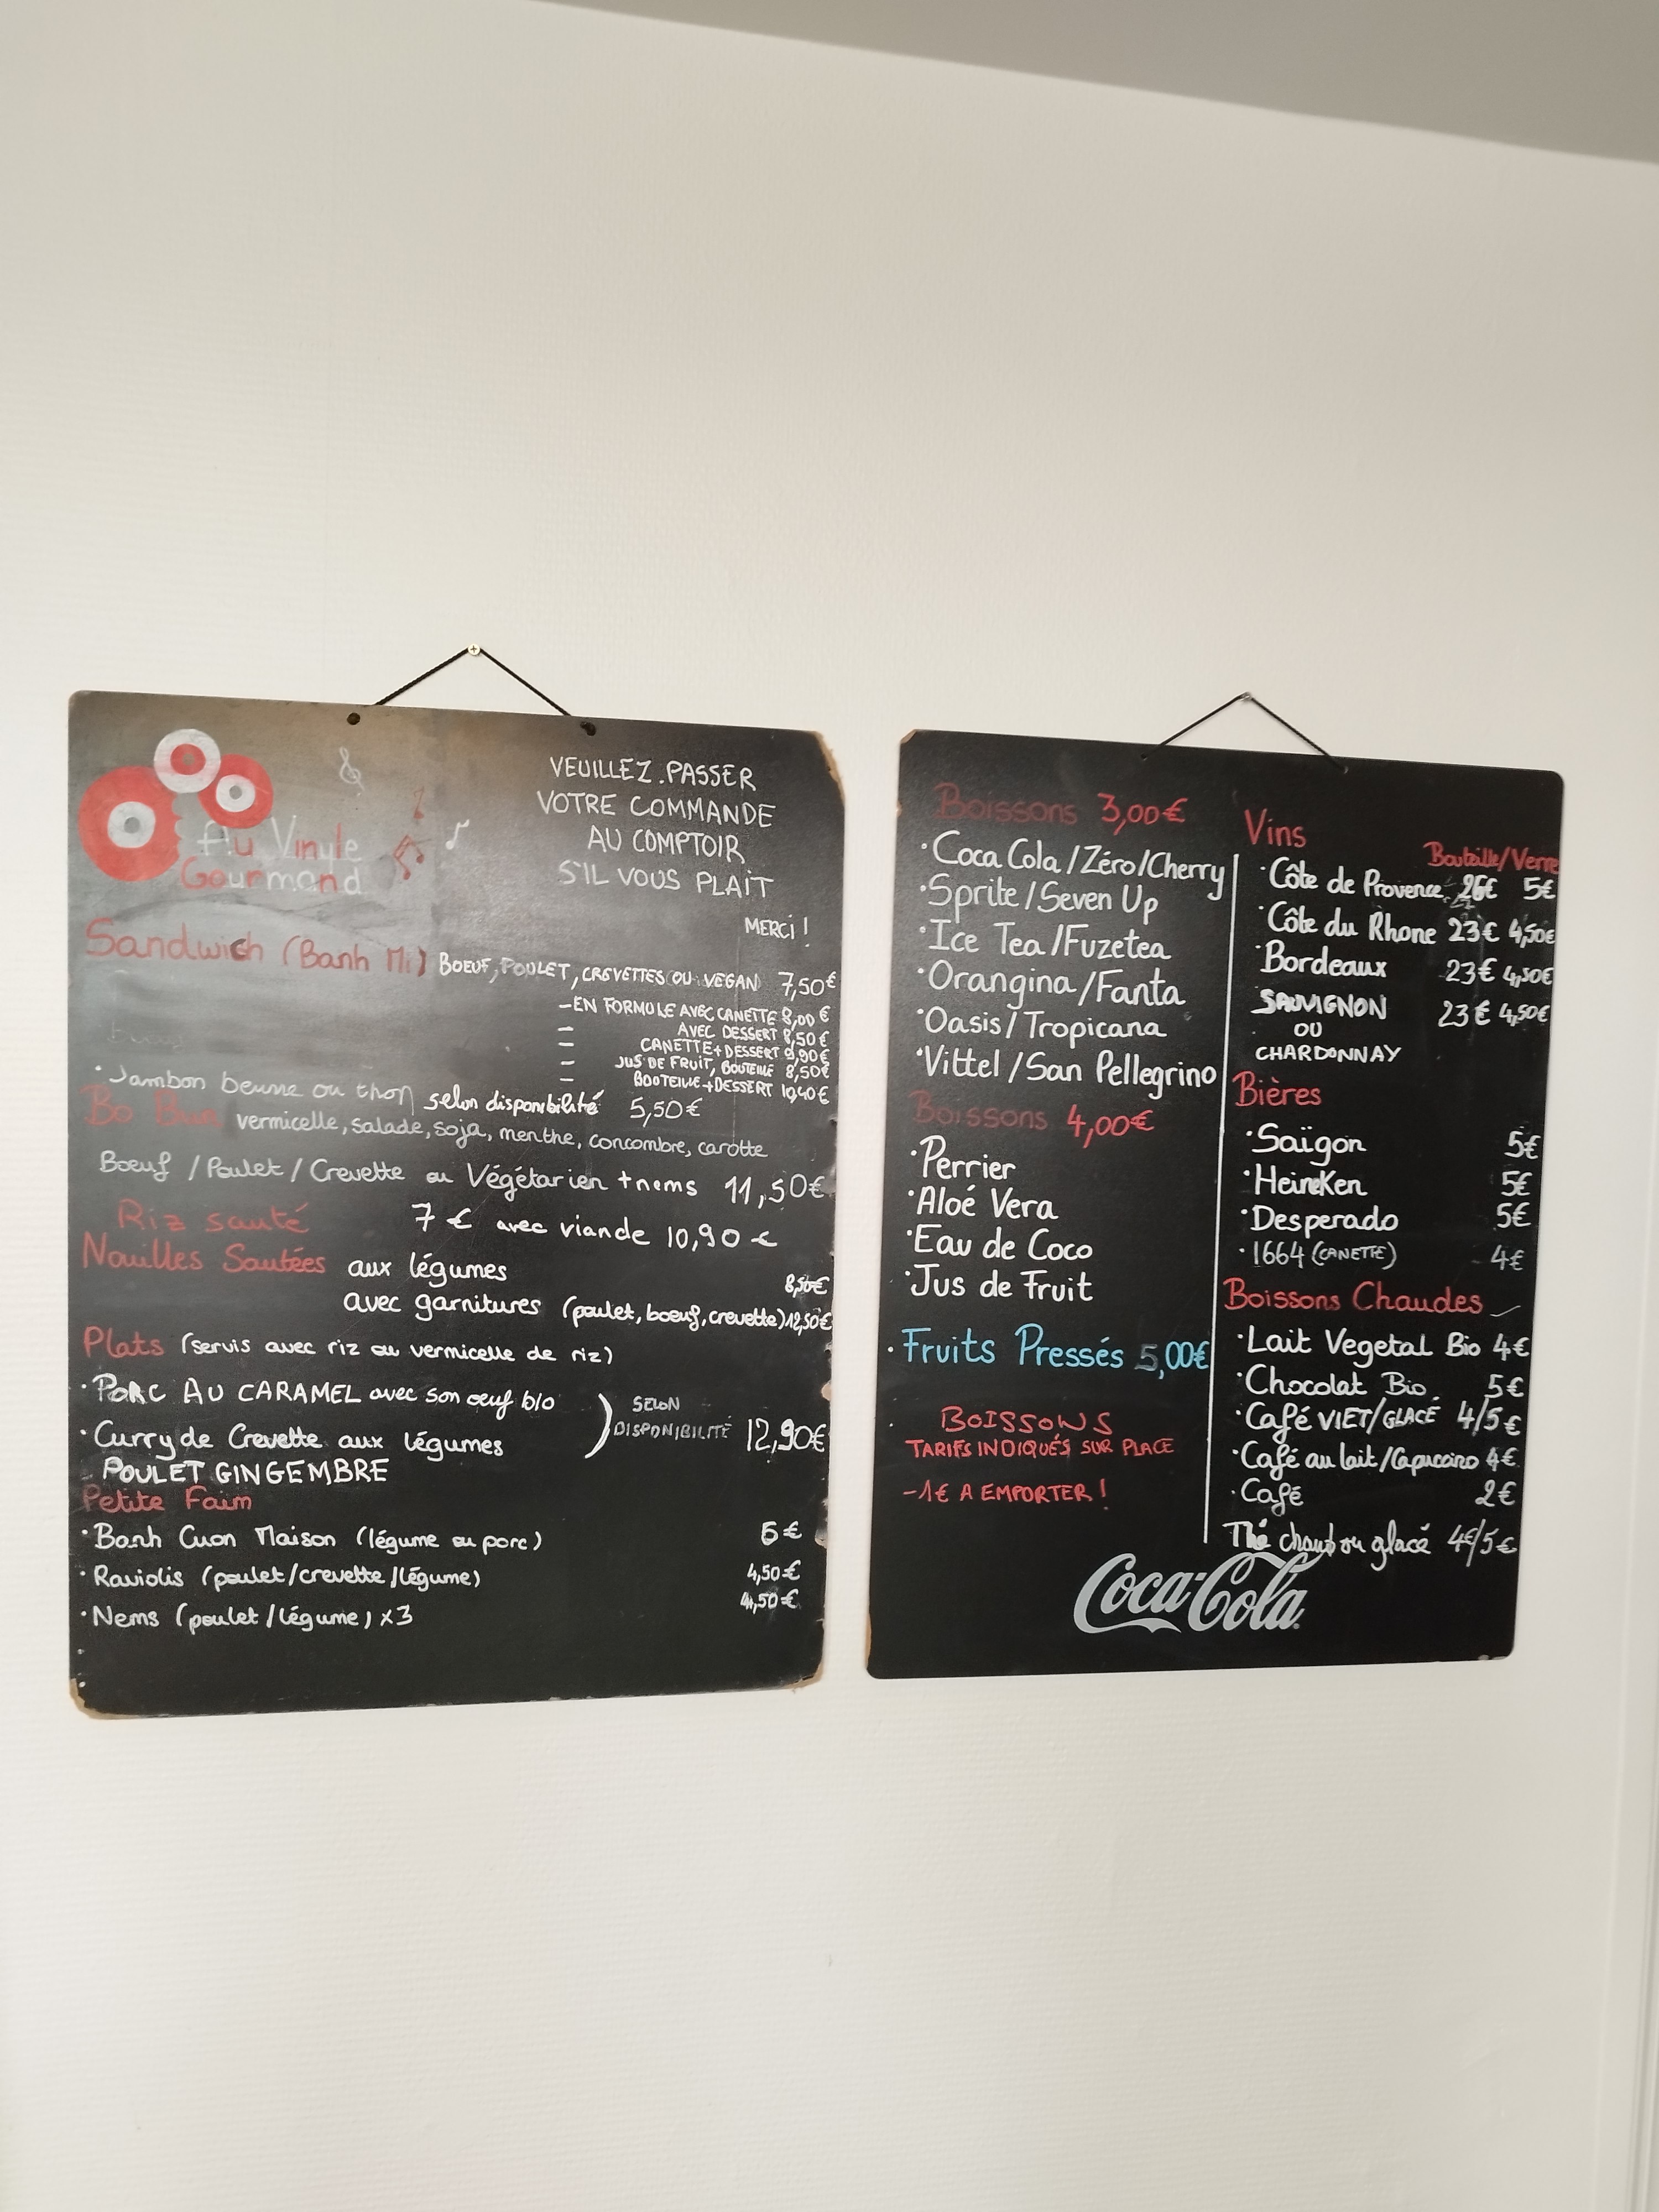 Au Vinyle
Gourmand
VEUILLEZ.PASSER
VOTRE COMMANDE
AU COMPTOIR
S'IL VOUS PLAIT
MERCI !
Sandwich (Banh Mi) BOEUF, POULET, CREVETTES OU VEGAN 7,50€
- EN FORMULE AVEC CANETTE 8,00 €
- AVEC DESSERT 8,50€
- CANETTE+DESSERT 9,90€
- JUS DE FRUIT, BOUTEILLE 8,50€
- BOUTEILLE+DESSERT 10,40€
· Jambon beurre ou thon selon disponibilité 5,50€
Bo Bun vermicelle, salade, soja, menthe, concombre, carotte
Boeuf / Poulet / Crevette ou Végétarien + nems 11,50€
Riz sauté 7 € avec viande 10,90 €
Nouilles Sautées aux légumes 8,50€
avec garnitures (poulet, boeuf, crevette) 12,50€
Plats (servis avec riz ou vermicelle de riz)
· PORC AU CARAMEL avec son oeuf bio
· Curry de Crevette aux légumes
) SELON
DISPONIBILITÉ 12,90€
POULET GINGEMBRE
Petite Faim
· Banh Cuon Maison (légume ou porc)
· Raviolis (poulet/crevette/légume) 4,50€
· Nems (poulet/légume) x3 4,50€
Boissons 3,00€
· Coca Cola /Zéro/Cherry
· Sprite /Seven Up
· Ice Tea /Fuzetea
· Orangina /Fanta
· Oasis / Tropicana
· Vittel /San Pellegrino
Boissons 4,00€
· Perrier
· Aloé Vera
· Eau de Coco
· Jus de Fruit
· Fruits Pressés 5,00€
BOISSONS
TARIFS INDIQUÉS SUR PLACE
-1€ A EMPORTER !
Vins
Bouteille/Verre
· Côte de Provence 5€
· Côte du Rhone 23€ 4,50€
· Bordeaux 23€ 4,50€
SAUVIGNON 23€ 4,50€
OU
CHARDONNAY
Bières
· Saïgon 5€
· HeineKen 5€
· Desperado 5€
· 1664 (CANETTE) 4€
Boissons Chaudes
· Lait Vegetal Bio 4€
· Chocolat Bio 5€
· Café VIET/GLACÉ 4/5€
· Café au lait /Capuccino 4€
· Café 2€
Thé chaud ou glacé 4€/5€
Coca-Cola